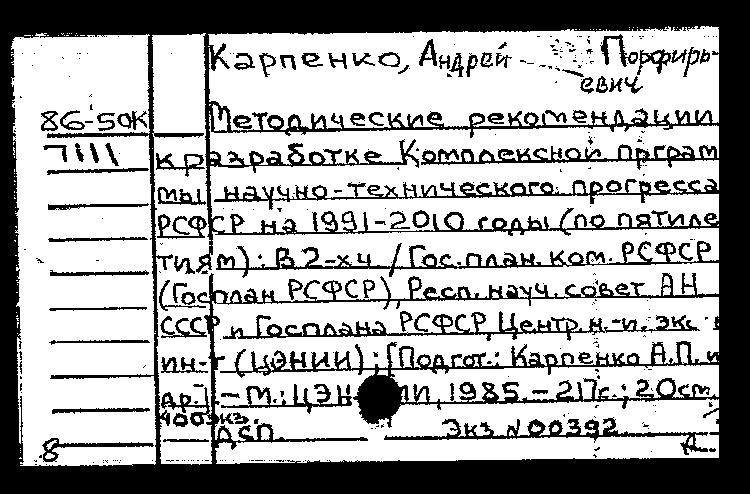 Карпенко, Андрей Порфирь-
евич
86-50К Методические рекомендации
7111 к разработке Комплексной прграм
мы научно-технического прогресса
РСФСР на 1991-2010 годы (по пятиле
тиям): В 2-х ч. / Гос. план. ком. РСФСР
(Госплан РСФСР), Респ. науч. совет АН
СССР и Госплана РСФСР, Центр. н.-и. экс
ин-т (ЦЭНИИ); [Подгот.: Карпенко А.П. и
др.]. - М.: ЦЭНИИ, 1985. - 217с.; 20см.
400экз.
ДСП. Экз N 00392
8